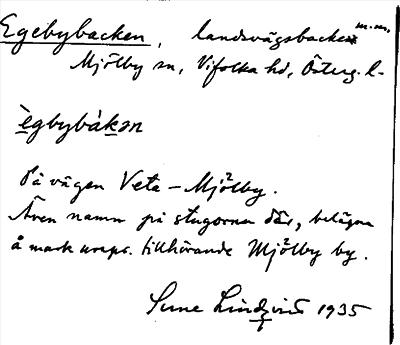 Egebybacken, landsvägsbacke m.m.,
Mjölby sn, Vifolka hd, Österg. l.
ègbybàkən
På vägen Veta – Mjölby.
Även namn på stugorna där, belägna
å mark urspr. tillhörande Mjölby by.
Sune Lindqvist 1935